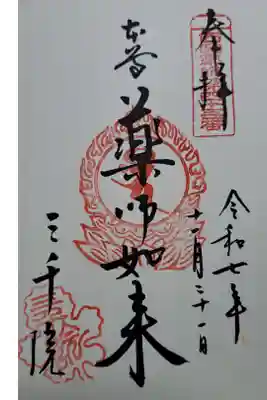 奉拝
令和七年
十一月二十一日
本尊
薬師如来
三千院